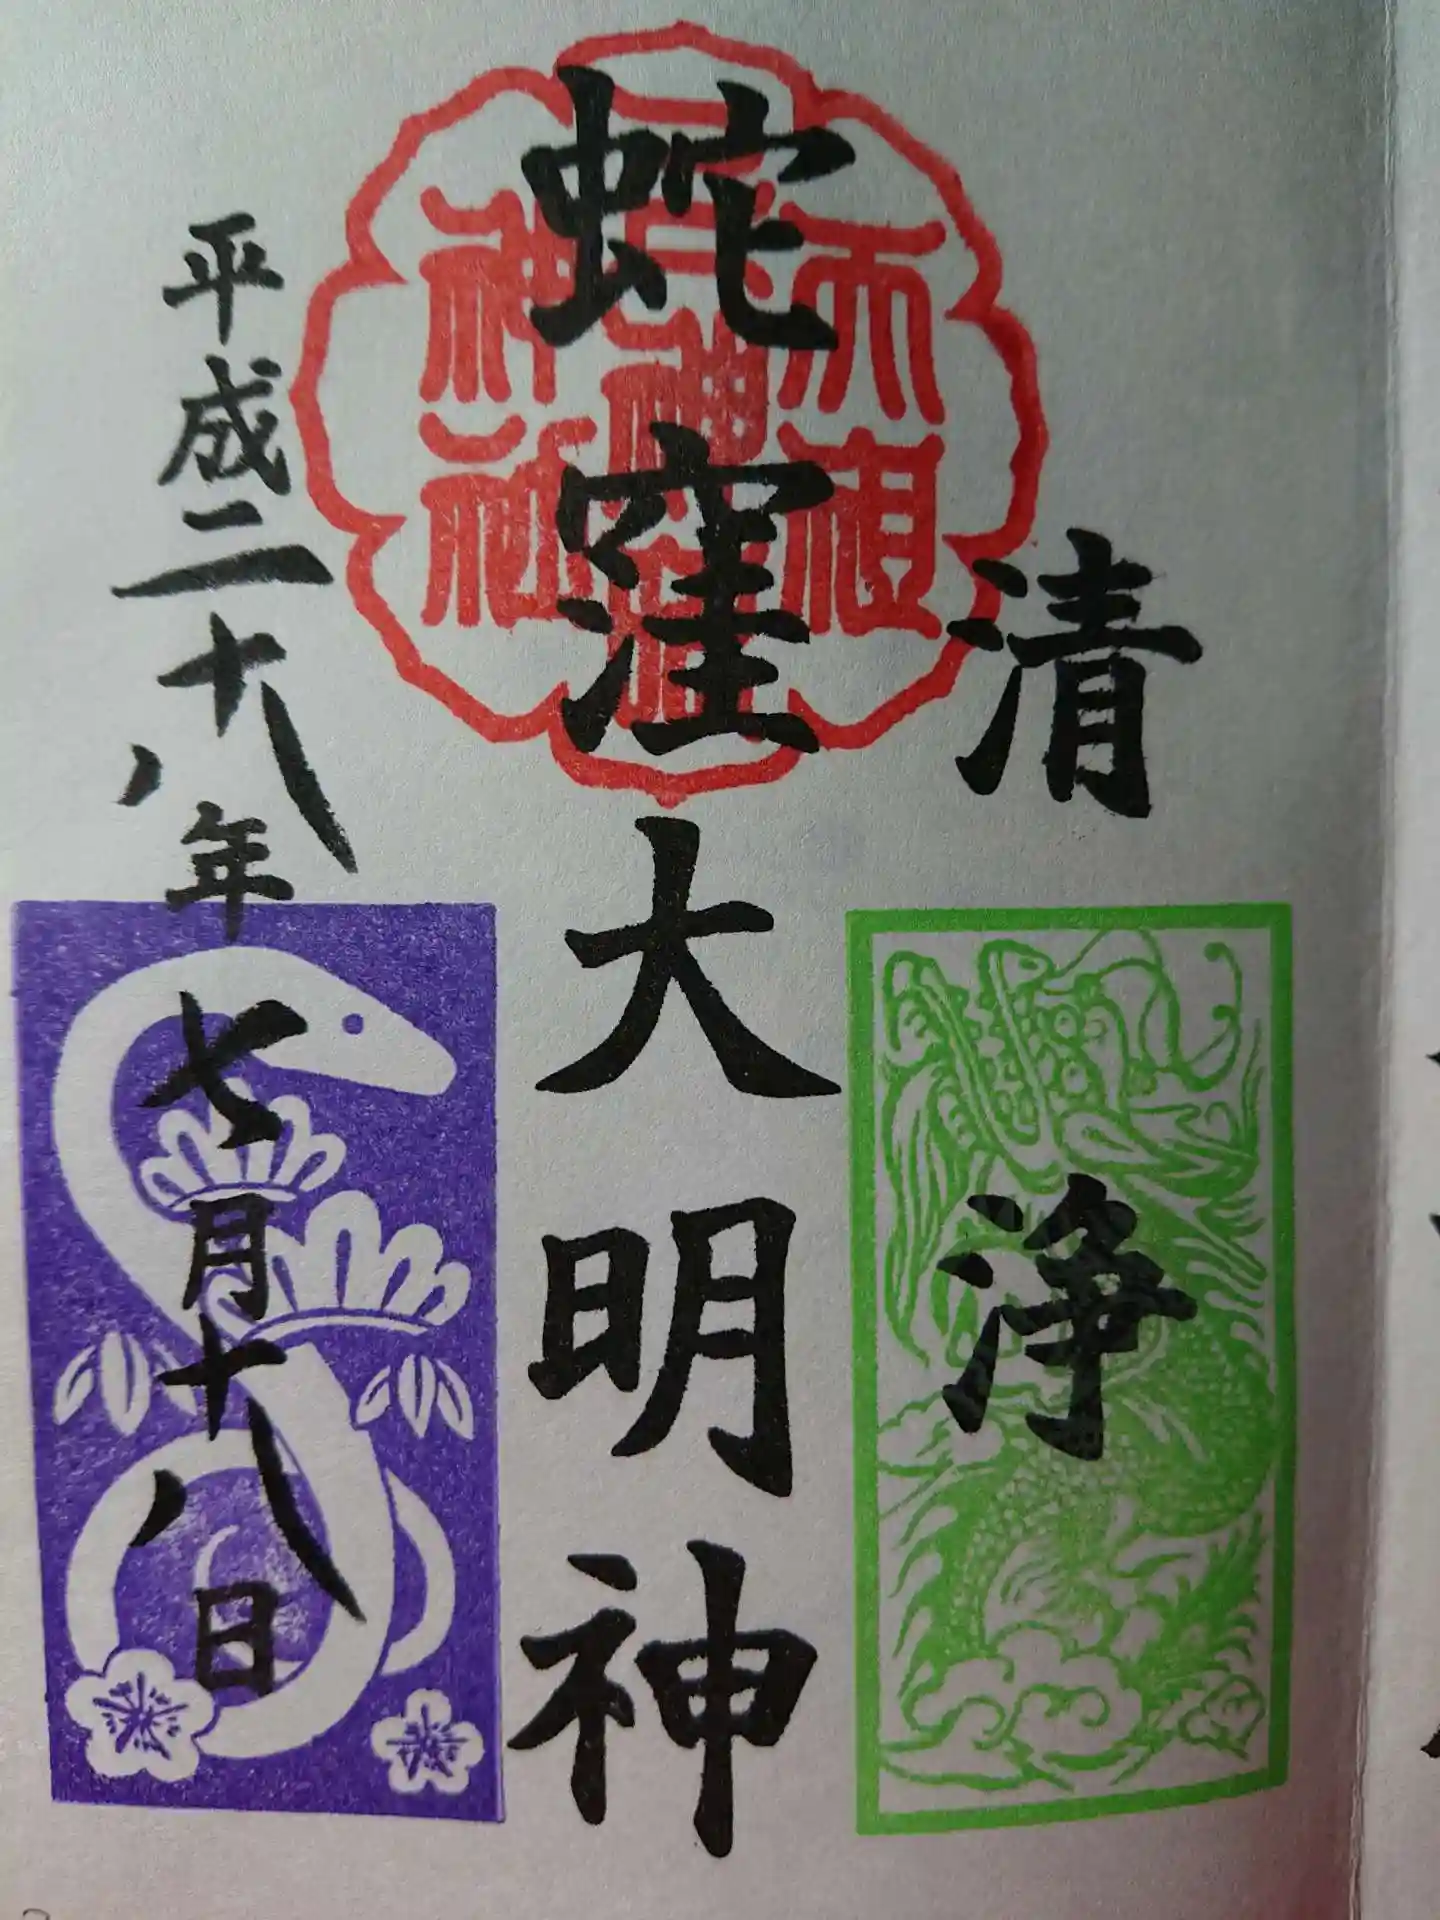 清浄
蛇窪大明神
平成二十八年七月十八日
天祖
神社